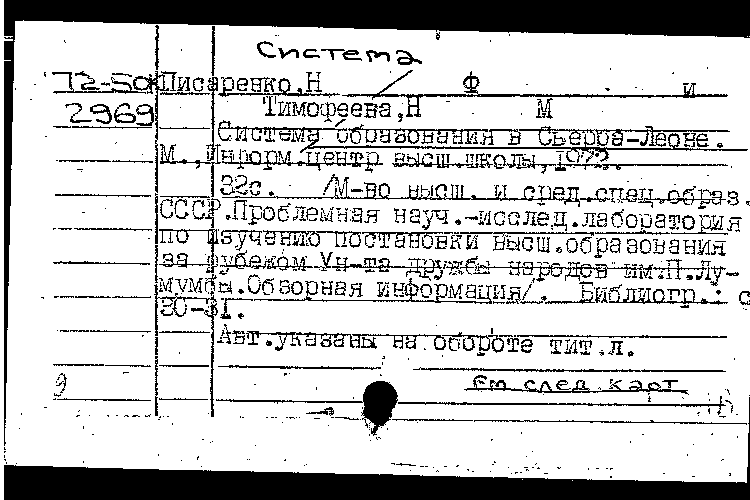 Система
72-50к Писаренко,Н Ф и
2969 Тимофеева,Н М
Система образования в Сьерра-Леоне.
М.,Информ.центр высш.школы,1972.
32с. /М-во высш. и сред.спец.образ.
СССР.Проблемная науч.-исслед.лаборатория
по изучению постановки высш.образования
за рубежом Ун-та дружбы народов им.П.Лу-
мумбы.Обзорная информация/. Библиогр.: с
30-31.
Авт.указаны на обороте тит.л.
9 См след. карт